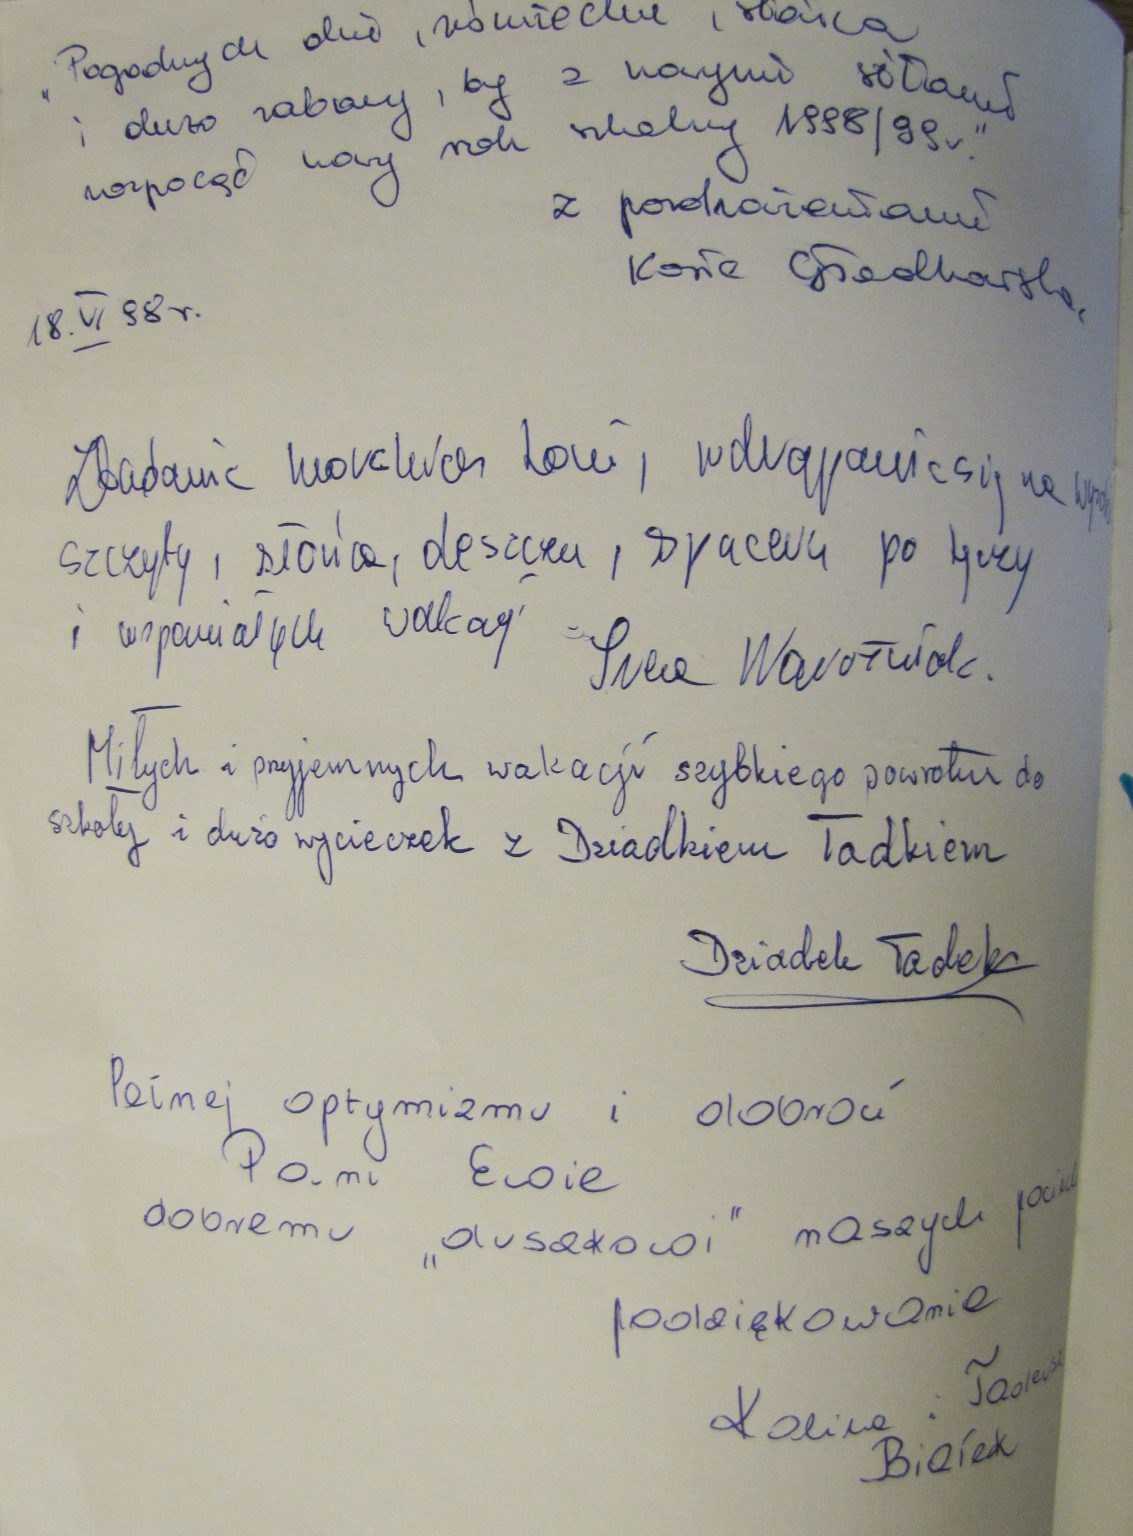 "Pogodnych dni, uśmiechu, słońca
i dużo zabawy, by z nowymi siłami
rozpocząć nowy rok szkolny 1998/99r."
z pozdrowieniami
18.VI 98r.
Zbadania morskiej toni, wdrapania się na
szczyty, słońca, deszczu, spaceru po tęczy
i wspaniałych wakacji
Miłych i przyjemnych wakacji szybkiego powrotu do
szkoły i dużo wycieczek z Dziadkiem Tadkiem
Dziadek Tadek
Pełnej optymizmu i dobroci
Pani Ewie
dobremu "duszkowi" naszych pociech
podziękowanie
Kalina i Tadeusz
Białek